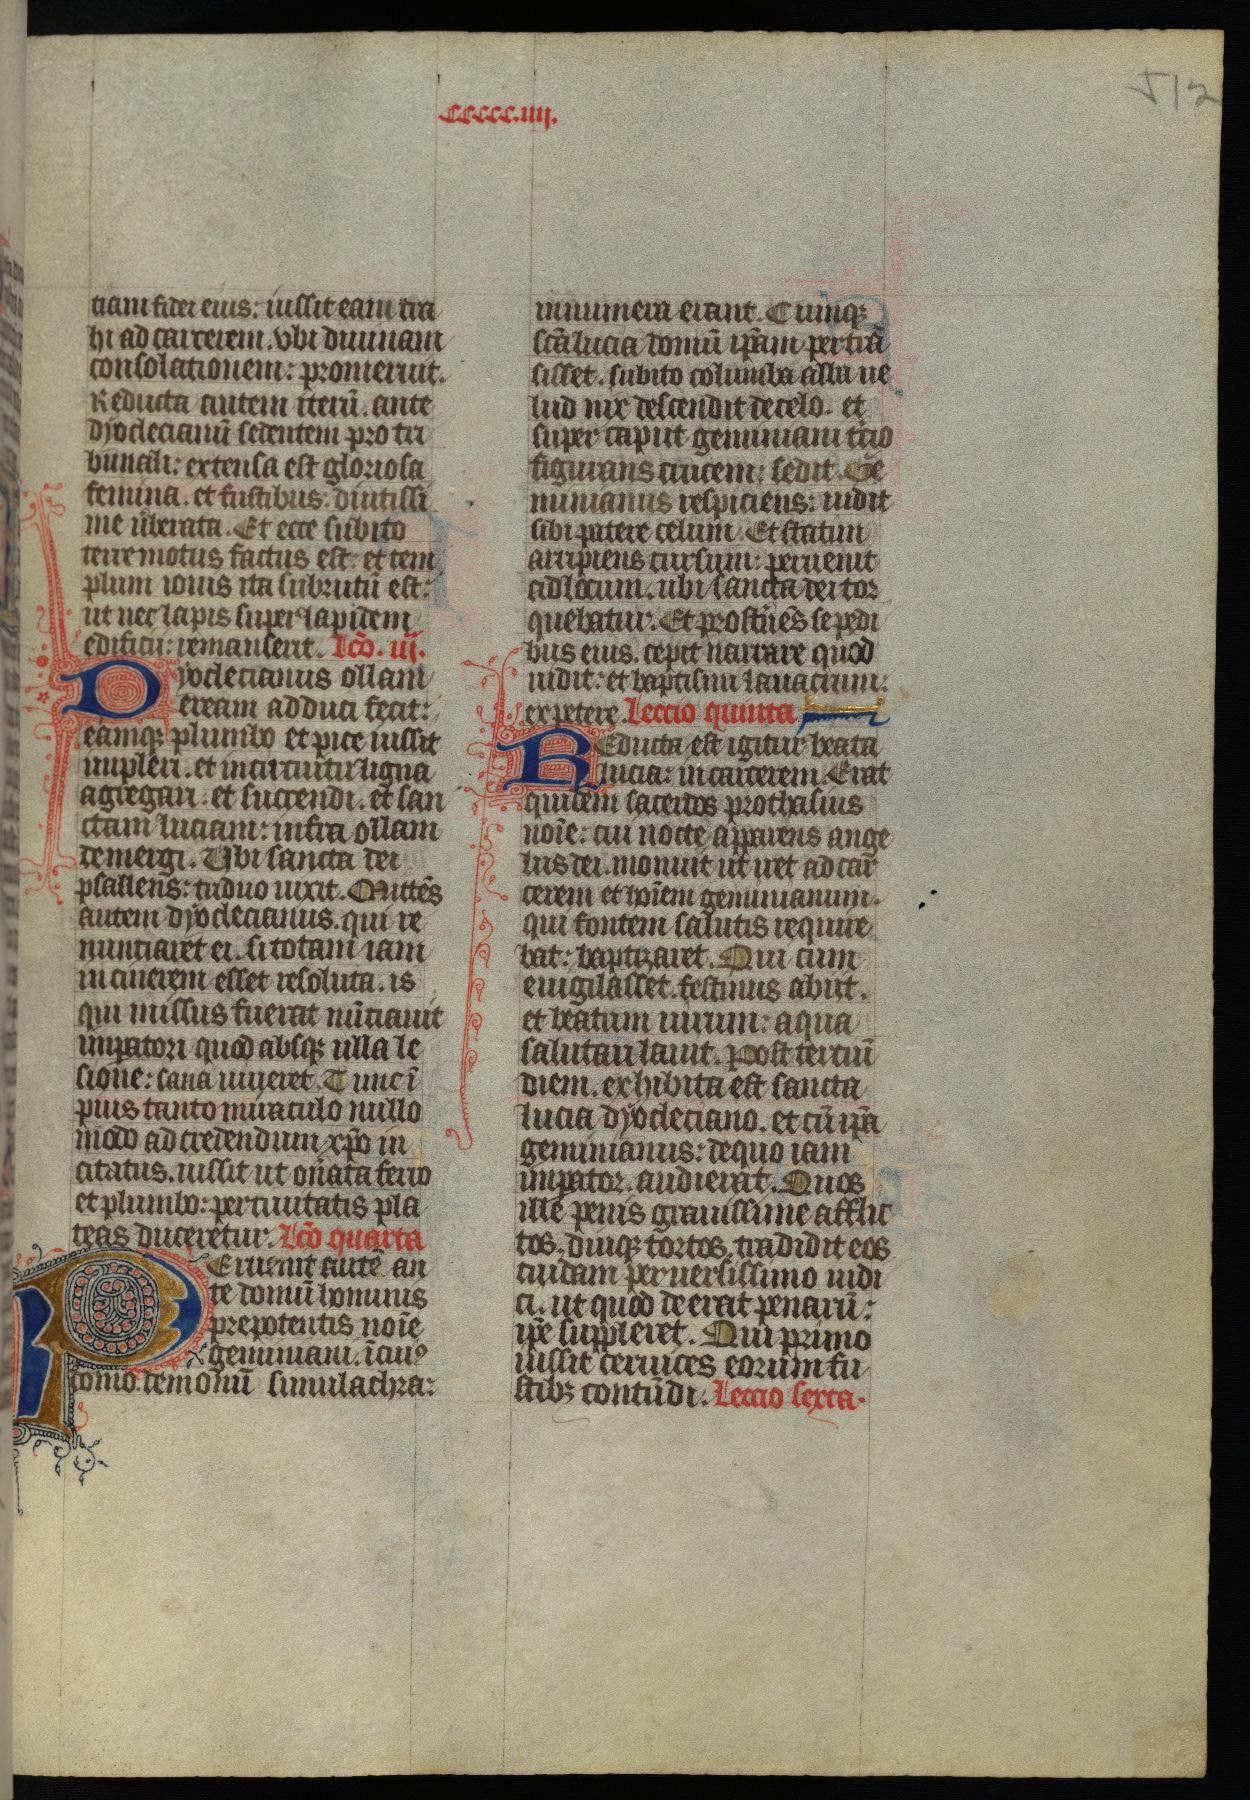 ccccc.iiij.
512
tiam fidei eius: iussit eam tra
hi ad carcerem. vbi diuinam
consolationem: promeruit.
Reducta autem iterū. ante
dyoclecianū sedentem pro tri
bunali: extensa est gloriosa
femina. et fustibus: diutissi
me ūberata. Et ecce subito
terremotus factus est: et tem
plum iouis ita subrutū est:
ut nec lapis super lapidem
edificii: remanserit. Lc̄o. iij.
Dyoclecianus ollam
eream adduci fecit:
eamqꝫ plumbo et pice iussit
impleri. et in circuitu ligna
agregari. et succendi. et san
ctam luciam: infra ollam
demergi. Vbi sancta dei
psallens: triduo uixit. Mittēs
autem dyoclecianus. qui re
nunciaret ei. si totam iam
in cinerem esset resoluta. is
qui missus fuerat nūciauit
impatori quod absqꝫ ulla le
sione: sana uiueret. Tunc ī
pius tanto miraculo nullo
modo ad credendum xp̄o in
citatus. iussit ut on̄ata ferro
et plumbo: per ciuitatis pla
teas duceretur. Lc̄o quarta
Peruenit autē an
te domū hominis
prepotentis noīe
geminiani. ī cuiꝰ
domo demonū simulachra:
innumera erant. Cumqꝫ
sc̄a lucia domū ip̄am per trā
sisset. subito columba alba ue
lud nix descendit de celo. et
super caput geminiani tc̄io
figurans crucem: sedit. Ge
minianus respiciens: uidit
sibi patere celum. Et statim
arripiens cursum: peruenit
ad locum. ubi sancta dei tor
quebatur. Et prostn̄ēs se pedi
bus eius. cepit narrare quod
uidit: et baptismi lauacrum:
expetere. Leccio quinta
Reducta est igitur beata
lucia: in carcerem. Erat
quidem sacerdos prothasius
noīe: cui nocte apparens ange
lus dei. monuit ut iret ad car
cerem et hoīem geminianum.
qui fontem salutis require
bat: baptizaret. Qui cum
euigilasset. festinus abiit.
et beatum uirum: aqua
salutari lauit. Post terciū
diem. exhibita est sancta
lucia dyocleciano. et cū ip̄a
geminianus: de quo iam
impator. audierat. Quos
ille penis grauissime afflic
tos. diuqꝫ tortos. tradidit eos
cuidam peruersissimo iudi
ci. ut quod deerat penarū:
ip̄e suppleret. Qui primo
iussit ceruices eorum fu
stibꝫ contūdi. Leccio sexta.